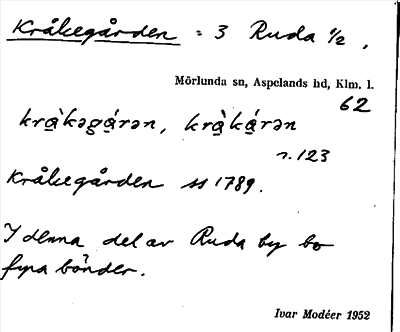 Kråkegården = 3 Ruda 1/2,
Mörlunda sn, Aspelands hd, Klm. l.
62
krà̱kəgá̱rən, krà̱ká̱rən
r. 123
Kråkegården ss 1789.
I denna del av Ruda by bo
fyra bönder.
Ivar Modéer 1952